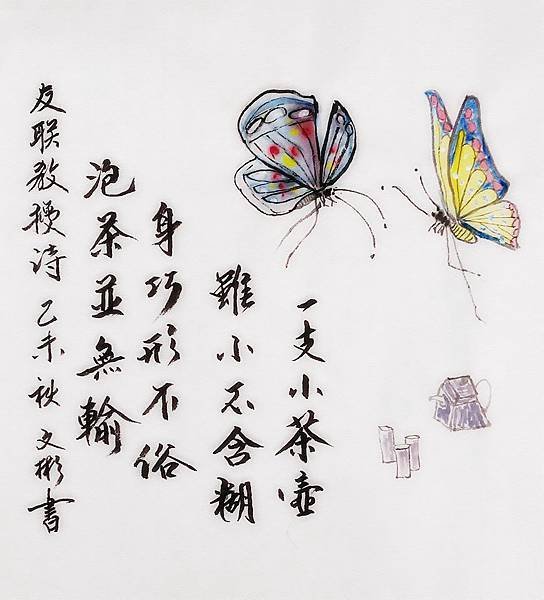 一支小茶壺
雖小不含糊
身巧形不俗
泡茶並無輸
友联教授诗 乙未秋 文彬書